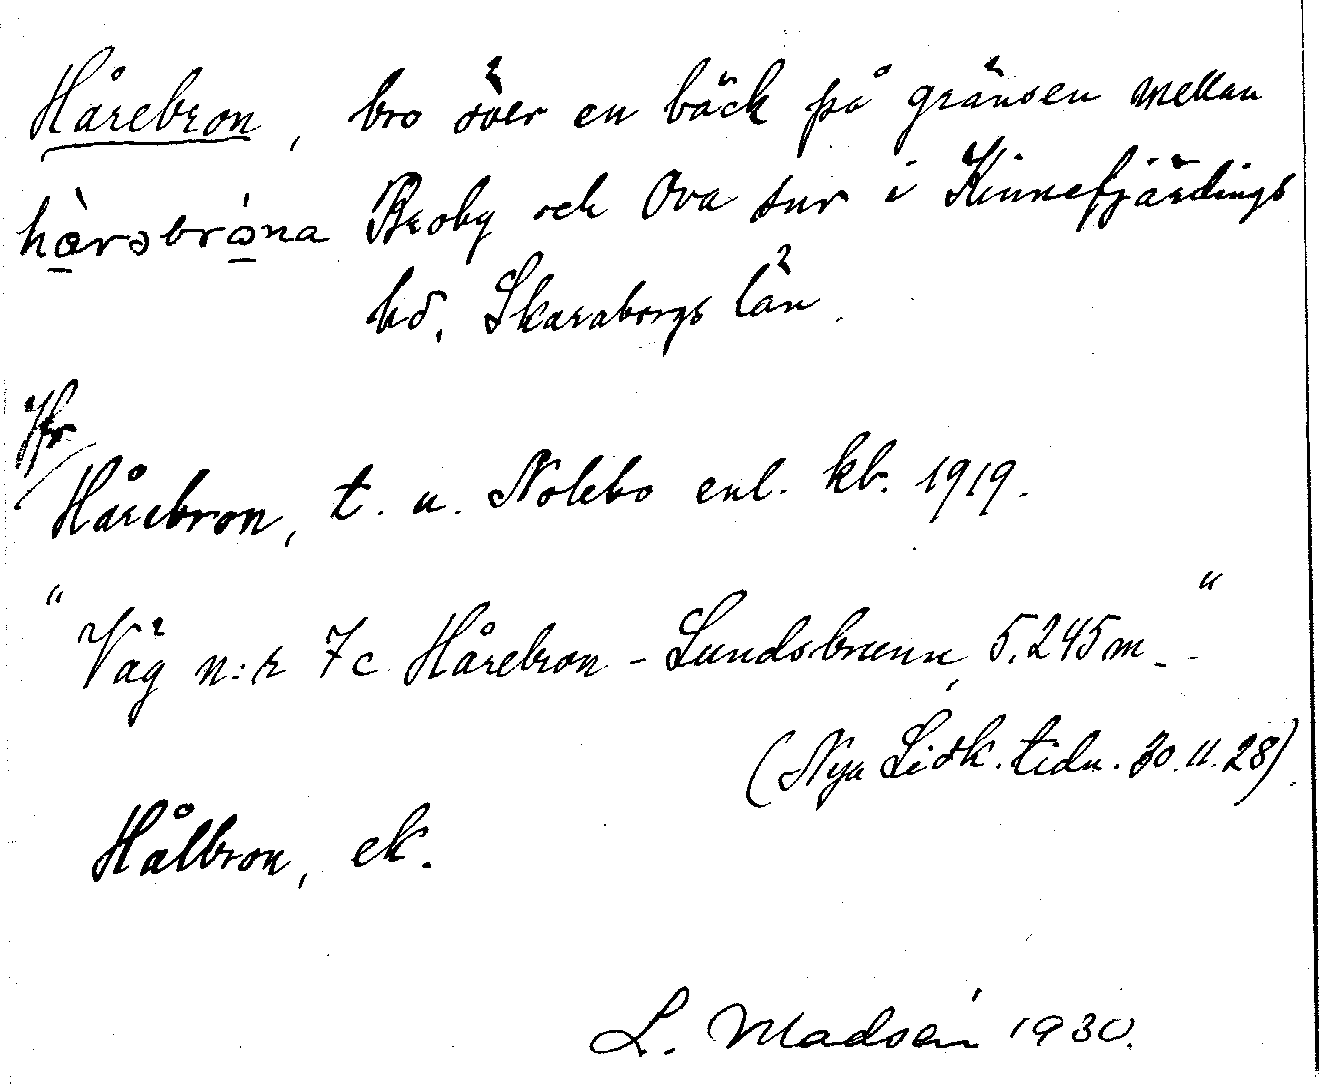 Hårebron, bro över en bäck på gränsen mellan
hàrəbróna Broby och Ova snr i Kinnefjärdings
hd. Skaraborgs län.
Jfr
Hårebron, t. u. Nolebo enl. kb. 1919.
"Väg n:r 7c Hårebron - Lundsbrunn, 5.245 m. -"
(Nya Lidk. tidn. 30.11.28).
Hålbron, ek.
L. Madsén 1930.